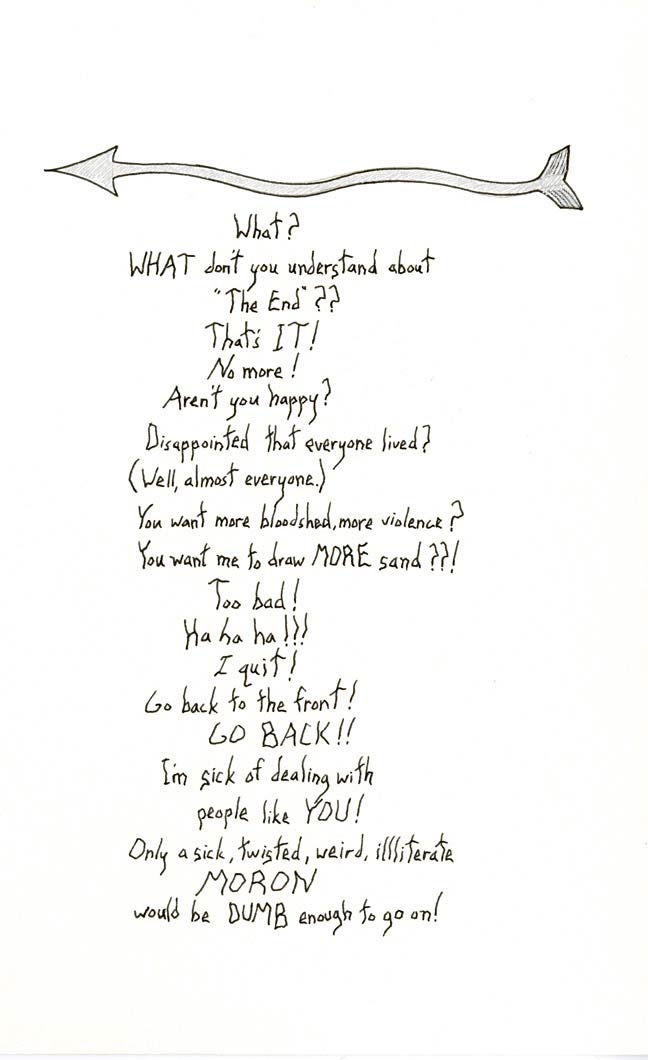 What?
WHAT don't you understand about
"The End"??
That's IT!
No more!
Aren't you happy?
Disappointed that everyone lived?
(Well, almost everyone.)
You want more bloodshed, more violence?
You want me to draw MORE sand??!
Too bad!
Ha ha ha!!!
I quit!
Go back to the front!
GO BACK!!
I'm sick of dealing with
people like YOU!
Only a sick, twisted, weird, illliterate
MORON
would be DUMB enough to go on!